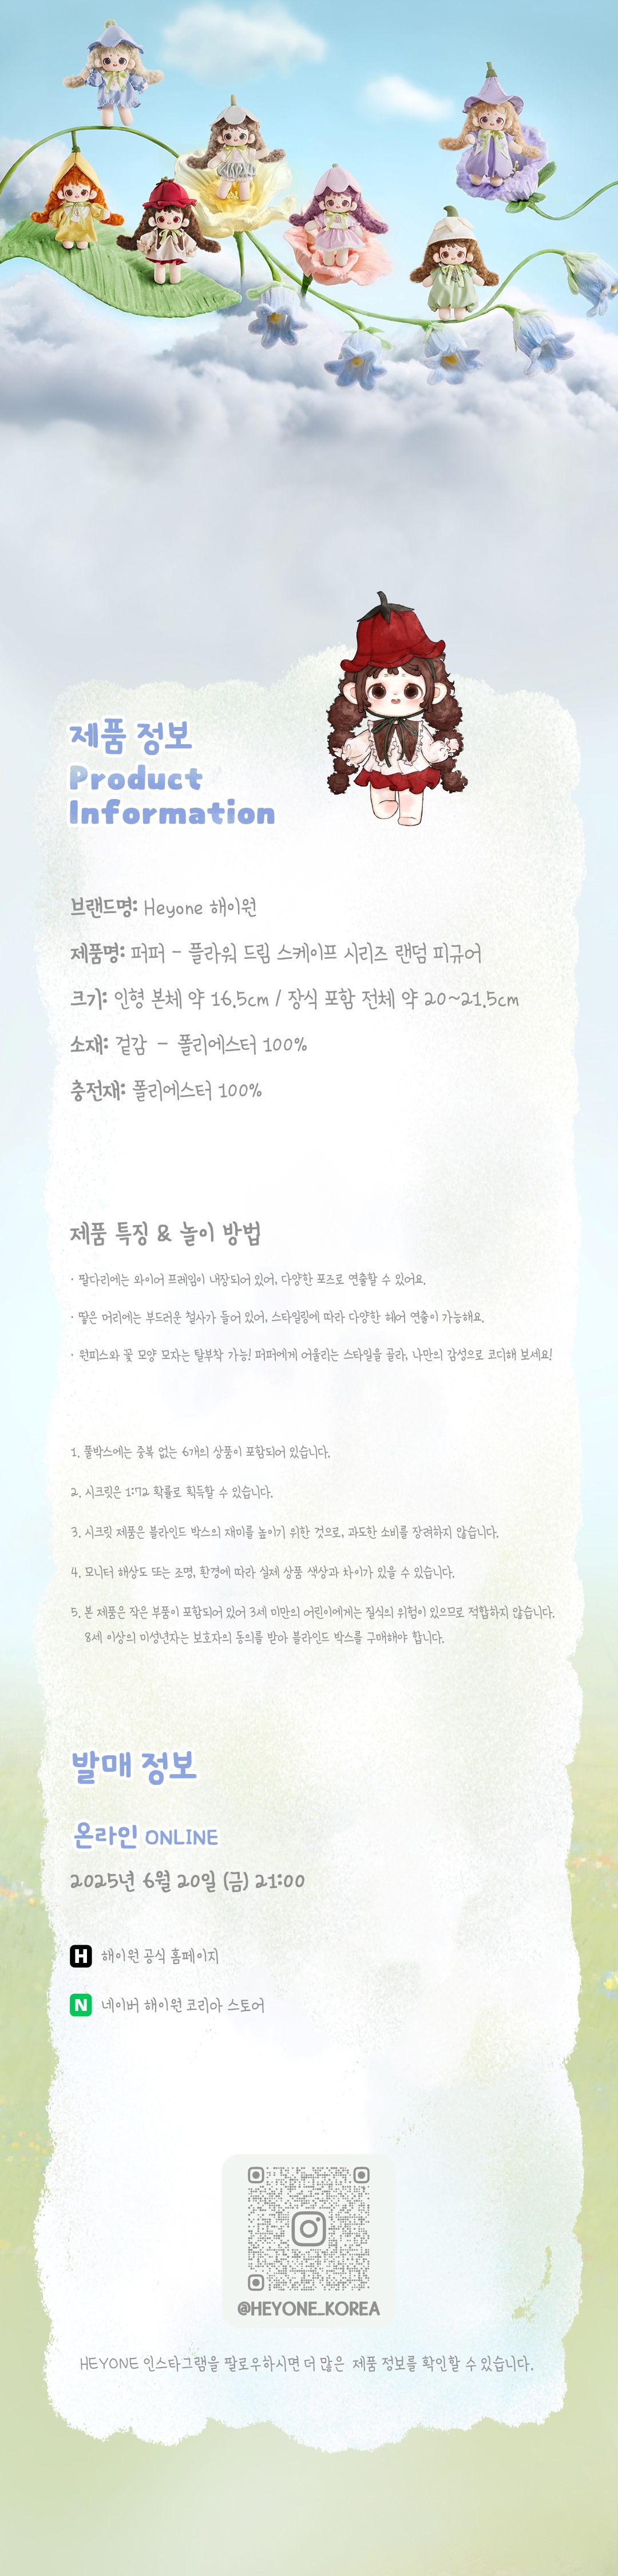 제품 정보
Product
Information
브랜드명: Heyone 해이원
제품명: 퍼퍼 - 플라워 드림 스케이프 시리즈 랜덤 피규어
크기: 인형 본체 약 16.5cm / 장식 포함 전체 약 20~21.5cm
소재: 겉감 - 폴리에스터 100%
충전재: 폴리에스터 100%
제품 특징 & 놀이 방법
· 팔다리에는 와이어 프레임이 내장되어 있어, 다양한 포즈로 연출할 수 있어요.
· 땋은 머리에는 부드러운 철사가 들어 있어, 스타일링에 따라 다양한 헤어 연출이 가능해요.
· 원피스와 꽃 모양 모자는 탈부착 가능! 퍼퍼에게 어울리는 스타일을 골라, 나만의 감성으로 코디해 보세요!
1. 풀박스에는 중복 없는 6개의 상품이 포함되어 있습니다.
2. 시크릿은 1:72 확률로 획득할 수 있습니다.
3. 시크릿 제품은 블라인드 박스의 재미를 높이기 위한 것으로, 과도한 소비를 장려하지 않습니다.
4. 모니터 해상도 또는 조명, 환경에 따라 실제 상품 색상과 차이가 있을 수 있습니다.
5. 본 제품은 작은 부품이 포함되어 있어 3세 미만의 어린이에게는 질식의 위험이 있으므로 적합하지 않습니다.
8세 이상의 미성년자는 보호자의 동의를 받아 블라인드 박스를 구매해야 합니다.
발매 정보
온라인 ONLINE
2025년 6월 20일 (금) 21:00
H 해이원 공식 홈페이지
N 네이버 해이원 코리아 스토어
@HEYONE_KOREA
HEYONE 인스타그램을 팔로우하시면 더 많은 제품 정보를 확인할 수 있습니다.